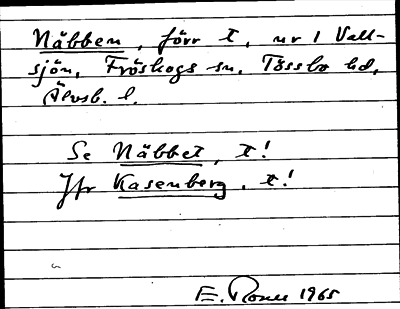 Näbben, förr t, nr 1 Vall-
sjön, Fröskogs sn, Tössbo hd,
Älvsb. l.
Se Näbbet, t!
Jfr Kasenberg, t!
E. 1965